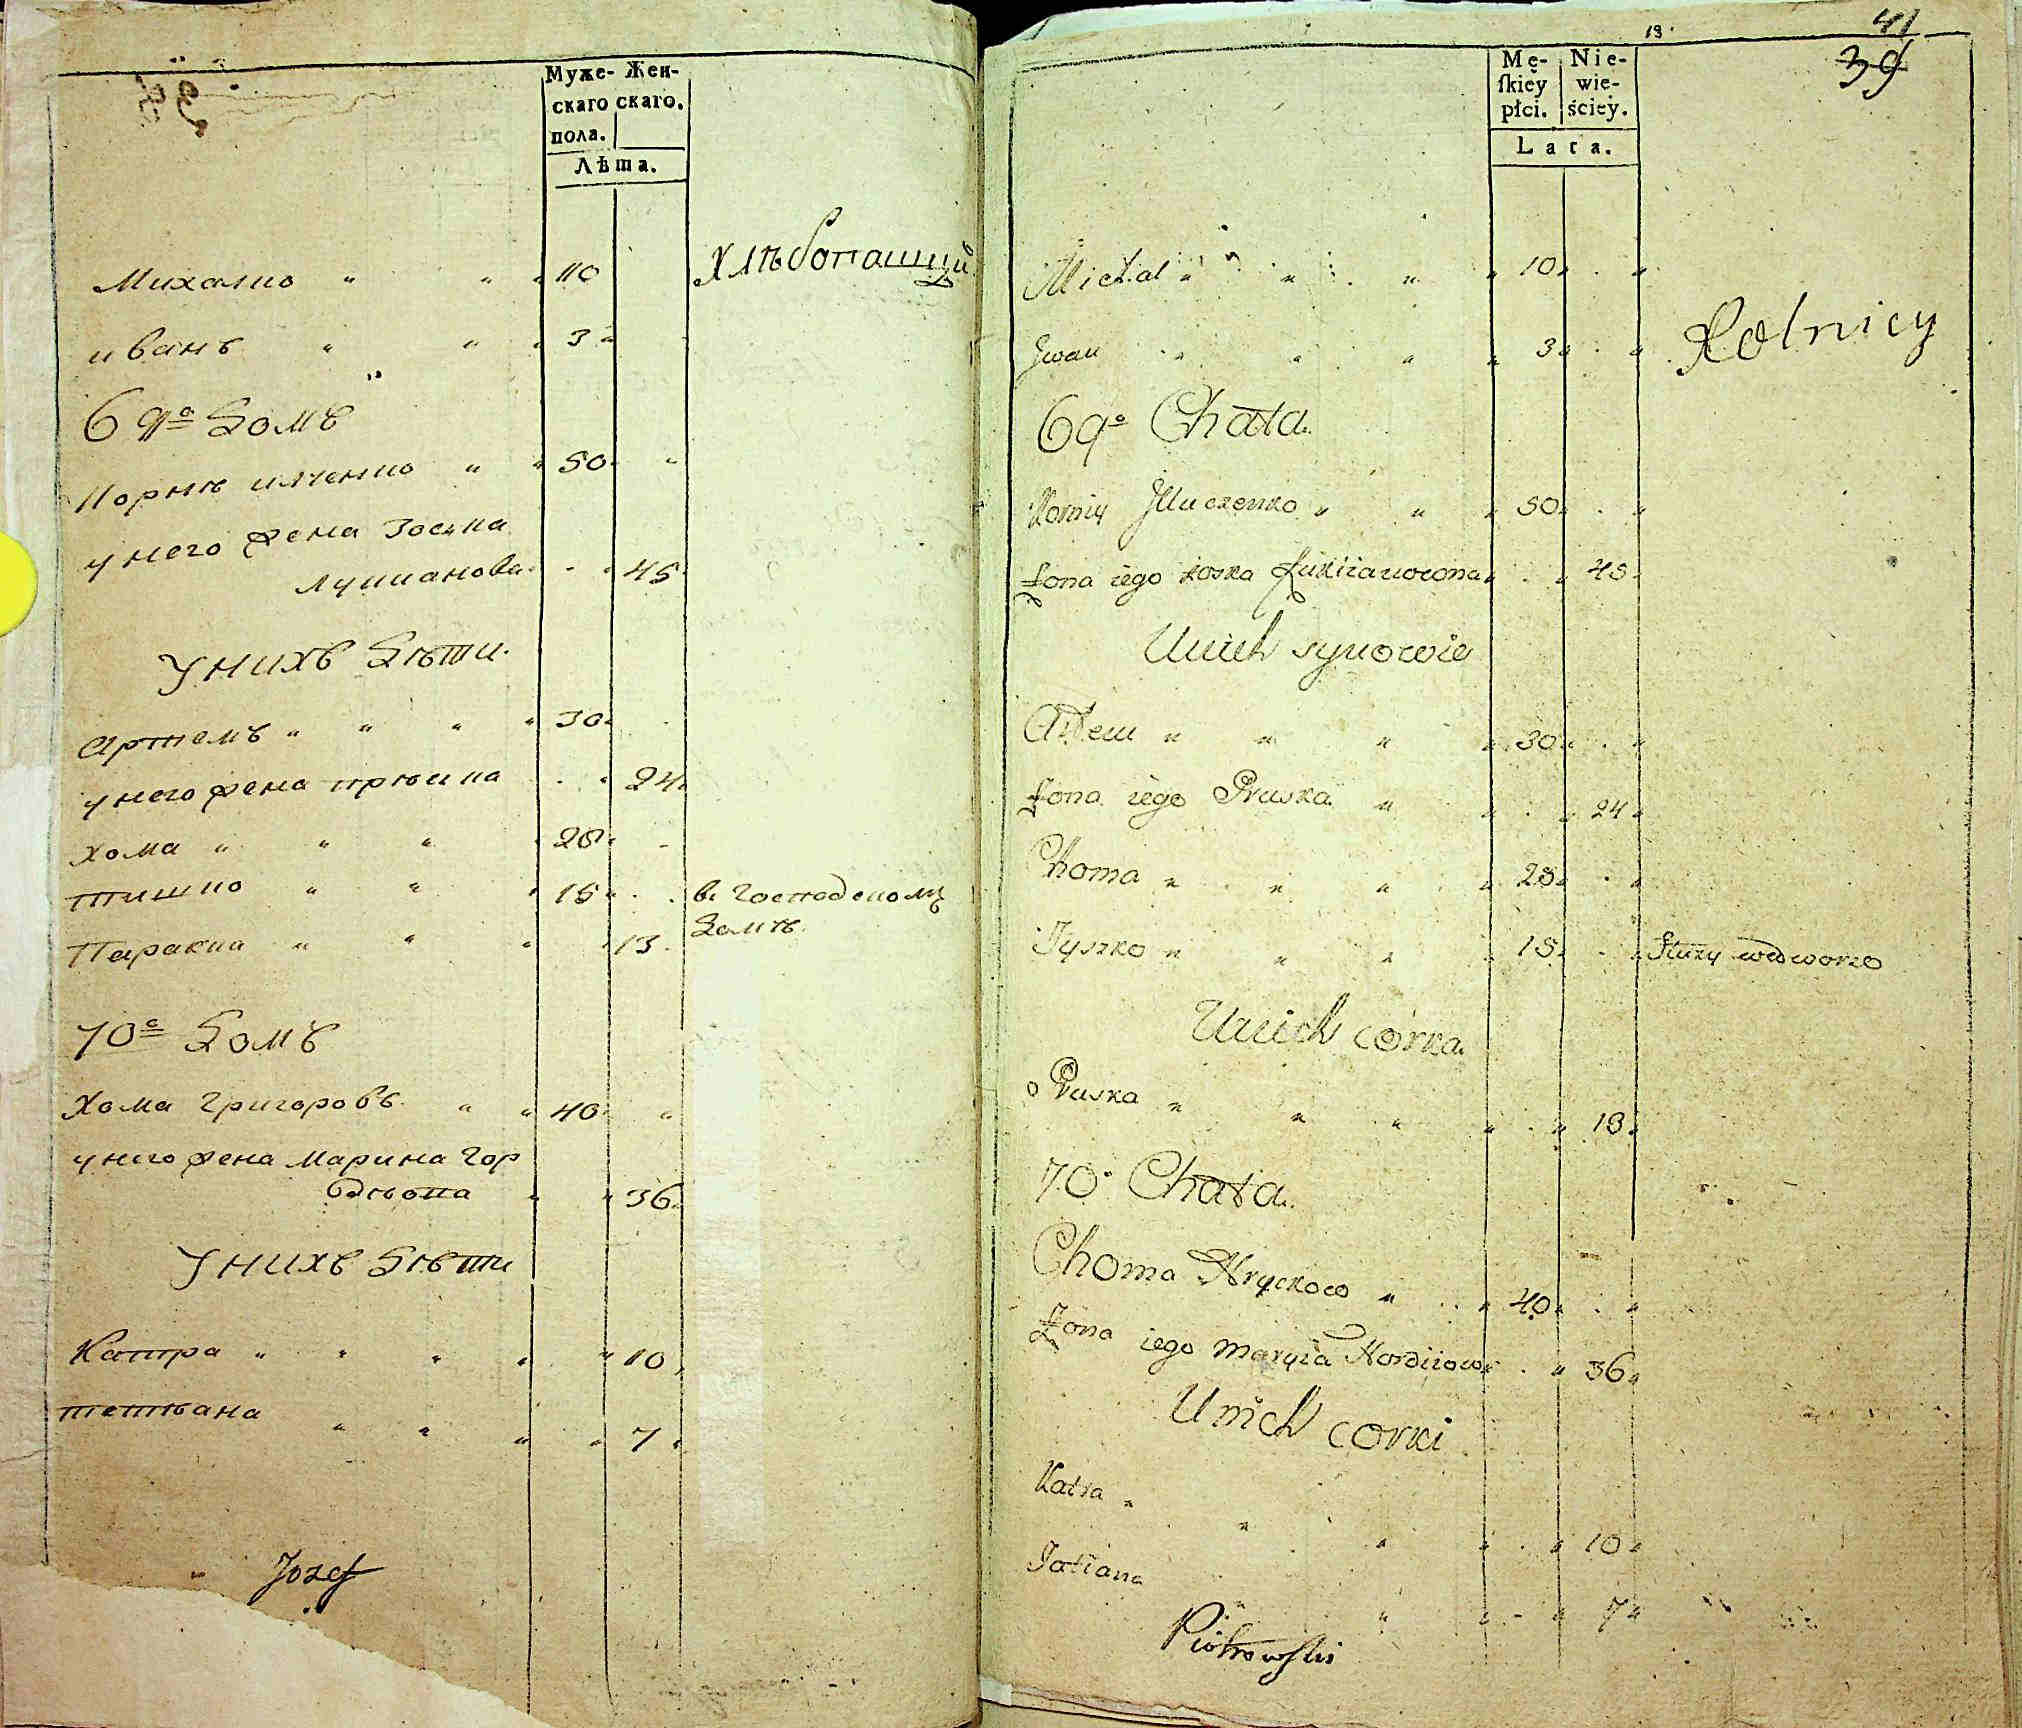 Муже- Жен-
скаго скаго.
пола.
Лѣта.
Михалко " " " 10
Хлѣбопашцы
иванъ " " " 3 "
69й домъ
Корнѣ илченко " " 50 "
у него жена Зоська
лукианова 45
У нихъ дѣти.
Артемъ " " " " 30
у него жена прѣська 24
Хома " " " 20
тишко " " " 15 в Господском
домѣ
Параска " " " 13
70й домъ
Хома Григоровъ " " 40 "
у него жена Марина Гор
дѣова " " 36
У нихъ дѣти
Катра " " " " " 10
тетяна " " " " 7
Jozef
13.
41
39
Mę- Nie-
ſkiey wie-
płci. ściey.
Lata.
Michał " " " " 10 " "
Jwan " " " " 3 " "
Rolnicy
69o Chata.
Korniy Jlluczenko " " " 50 " "
Żona iego Zoska Łukiianowona " " 45
Unich synowie
Artem " " " " 30 " "
Żona iego Pruska " " " 24
Choma " " " " 23 " "
Tyszko " " " " 15 " " Służy wedworze
Unich corka.
Pruska " " " " " 13
70o Chata.
Choma Hryckow " " 40 " "
Żona iego Maryia Hordiiow " " 36
Unich corki
Katra " " " " " 10
Tatiana " " " " 7
Piotrowski